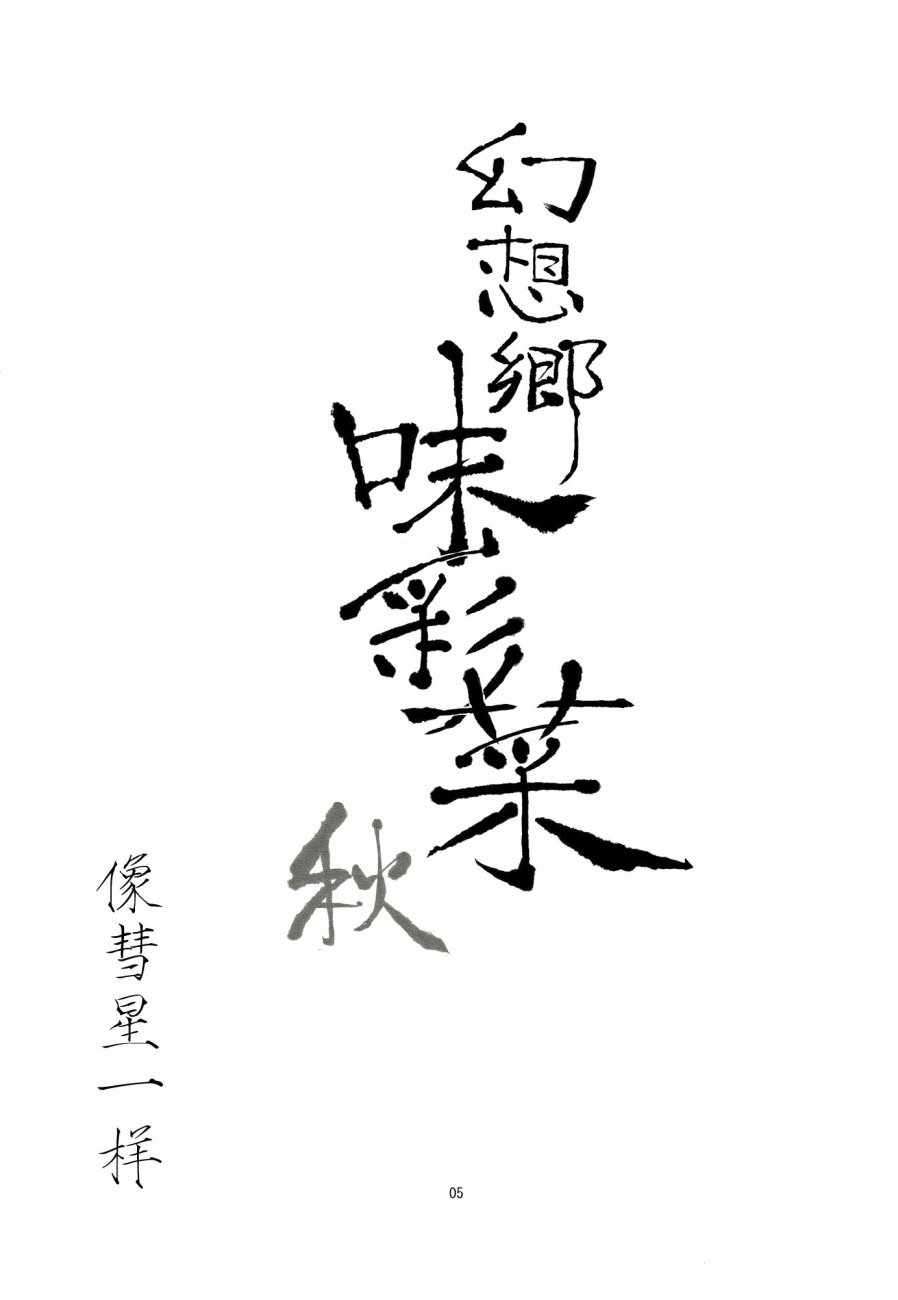 幻想郷
味彩菜
秋
像彗星一样
05